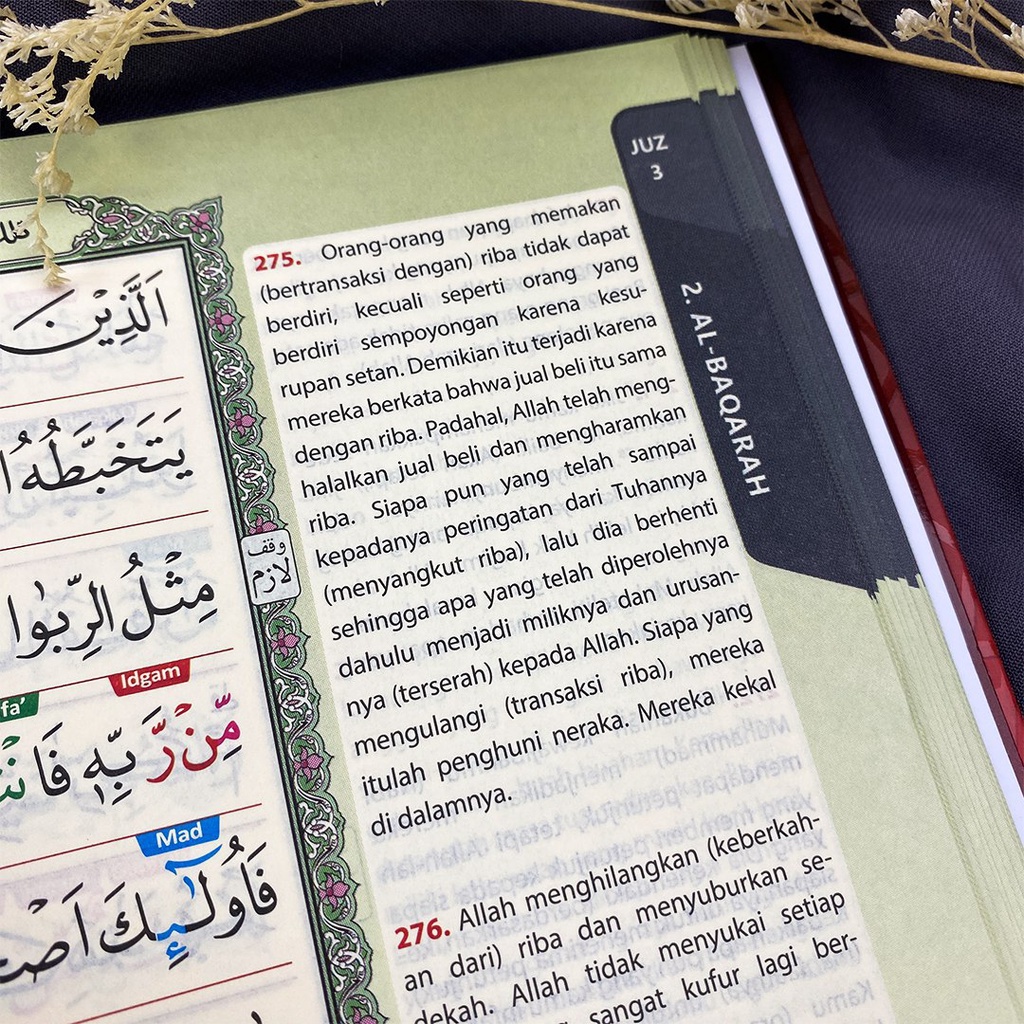 JUZ
3
2. AL-BAQARAH
275. Orang-orang yang memakan
(bertransaksi dengan) riba tidak dapat
berdiri, kecuali seperti orang yang
berdiri sempoyongan karena kesu-
rupan setan. Demikian itu terjadi karena
mereka berkata bahwa jual beli itu sama
dengan riba. Padahal, Allah telah meng-
halalkan jual beli dan mengharamkan
riba. Siapa pun yang telah sampai
kepadanya peringatan dari Tuhannya
(menyangkut riba), lalu dia berhenti
sehingga apa yang telah diperolehnya
dahulu menjadi miliknya dan urusan-
nya (terserah) kepada Allah. Siapa yang
mengulangi (transaksi riba), mereka
itulah penghuni neraka. Mereka kekal
di dalamnya.
276. Allah menghilangkan (keberkah-
an dari) riba dan menyuburkan se-
dekah. Allah tidak menyukai setiap
sangat kufur lagi ber-
اَلَّذِيْنَ
يَتَخَبَّطُهُ
وقف
لازم
مِثْلُ الرِّبٰوا
Idgam
fa'
مِّنْ رَّبِّهٖ
Mad
فَاُولٰۤىِٕكَ